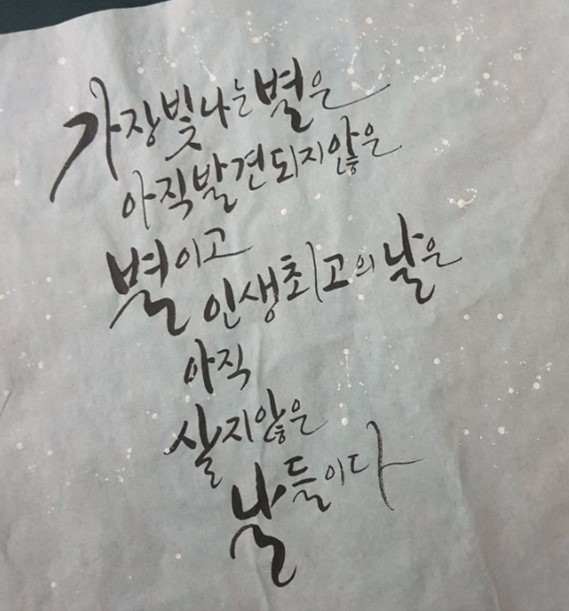 가장 빛나는 별은
아직 발견되지 않은
별이고
인생 최고의 날은
아직
살지 않은
날들이다